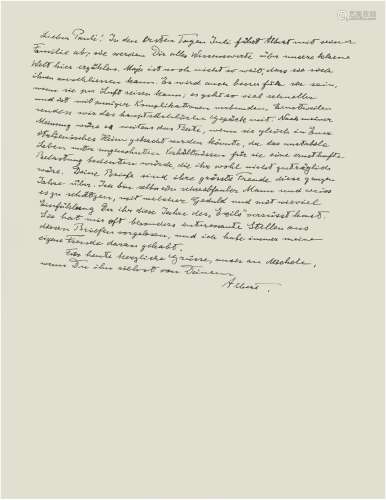 Lieber Paul! In den ersten Tagen Juli fährt Albert mit seiner
Familie ab, sie werden Dir alles Wissenswerte über unsere kleine
Welt hier erzählen. Maja ist noch nicht so weit, dass sie sich
ihnen anschliessen kann. Es wird auch besser für sie sein,
wenn sie zur Luft reisen kann; es geht so viel schneller
und ist mit weniger Komplikationen verbunden. Einstweilen
senden wir das hauptsächliche Gepäck mit. Nach meiner
Meinung wäre es weitaus das Beste, wenn sie gleich in Euer
italienisches Heim gebracht werden könnte, da das unstabile
Leben unter ungewohnten Verhältnissen für sie eine ernsthafte
Belastung bedeuten würde, die ihr wohl nicht zuträglich
wäre. Deine Briefe sind ihre grösste Freude diese ganzen
Jahre über. Ich bin selber ein schreibfauler Mann und weiss
es zu schätzen, mit welcher Geduld und mit wieviel
Einfühlung Du ihr diese Jahre des "Exils" versüsst hast.
Sie hat mir oft besonders interessante Stellen aus
deinen Briefen vorgelesen, und ich habe immer meine
eigene Freude daran gehabt.
Für heute herzliche Grüsse, auch an
wenn Du ihn siehst von Deinem
Albert.